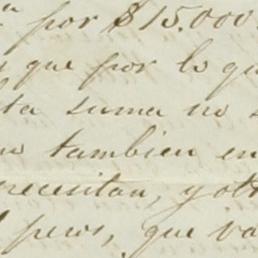 por $15.000
que por lo qu
ta suma no
tambien en
necesitan, y ot
pesos, que va